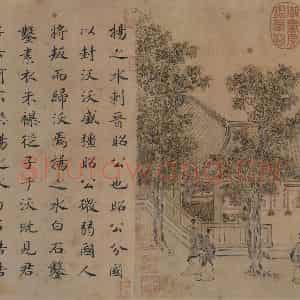 揚之水刺晉昭公也昭公分國
以封沃沃盛彊昭公微弱國人
將叛而歸沃焉揚之水白石鑿
鑿素衣朱襮從子于沃既見君